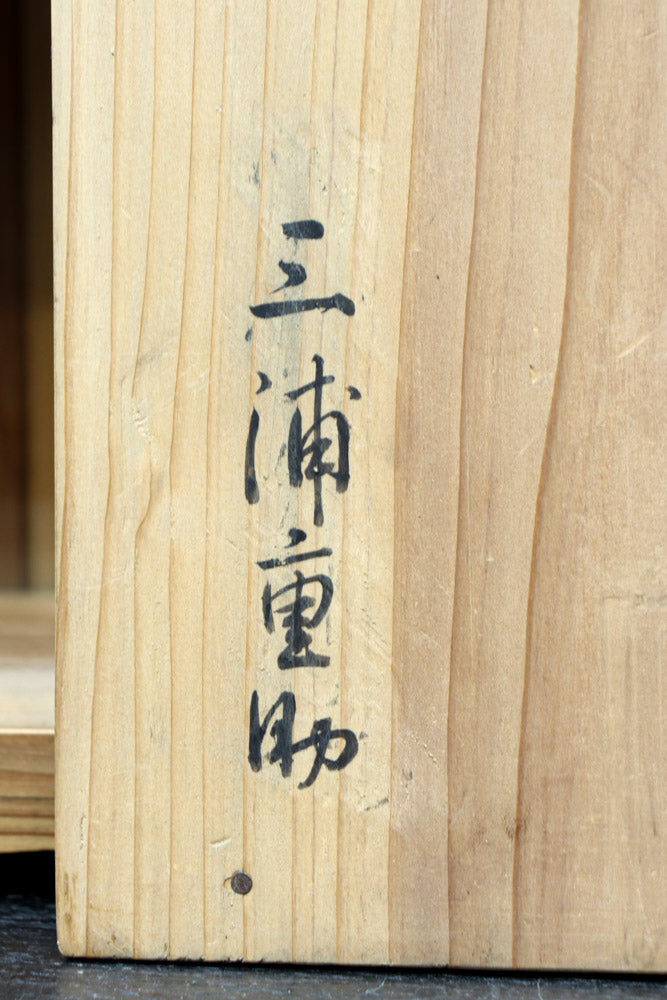 三浦重助